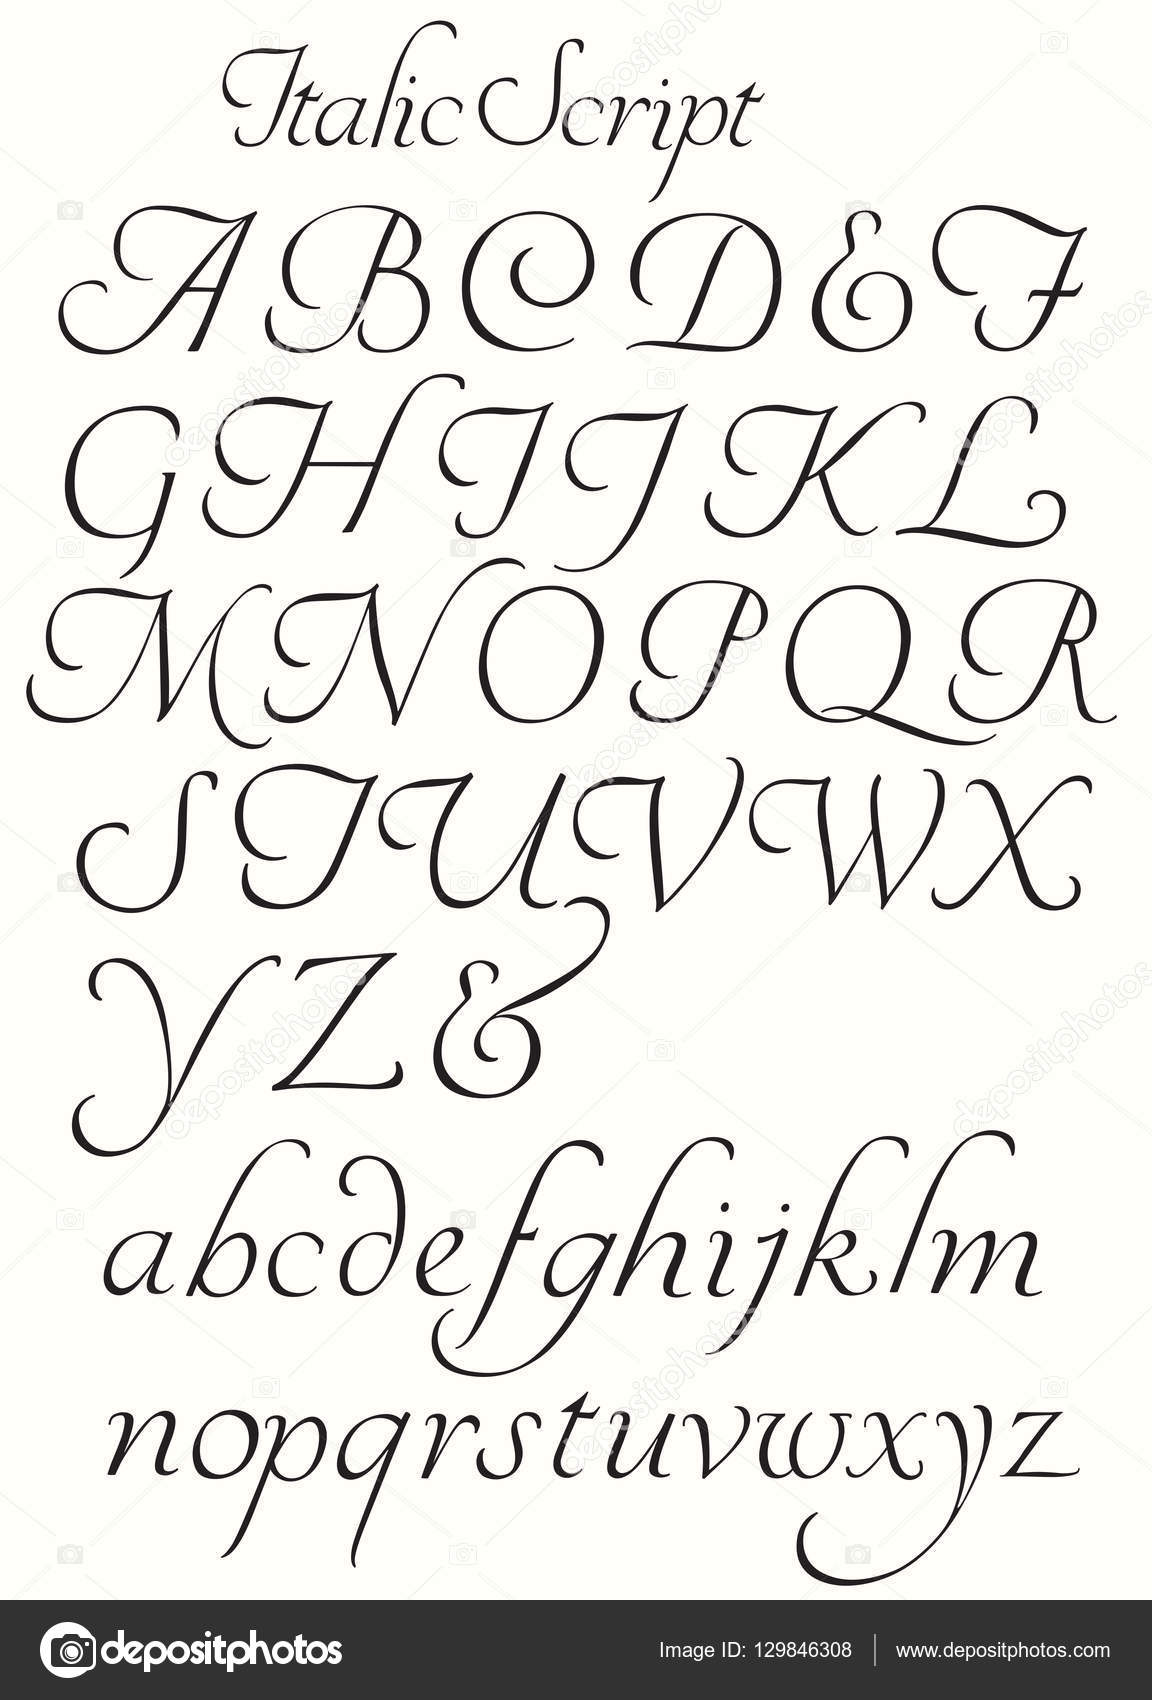 Italic Script
ABCDEF
GHIJKL
MNOPQR
STUVWX
YZ&
abcdefghijklm
nopqrstuvwxyz
depositphotos
Image ID: 129846308
www.depositphotos.com